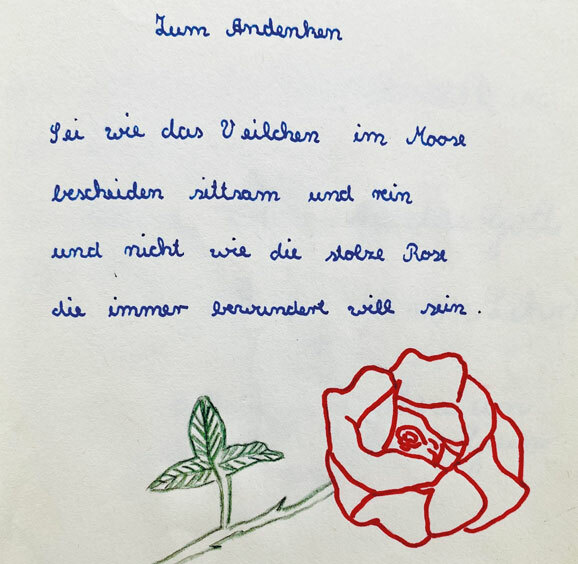 Zum Andenken
Sei wie das Veilchen im Moose
bescheiden sittsam und rein
und nicht wie die stolze Rose
die immer bewundert will sein.